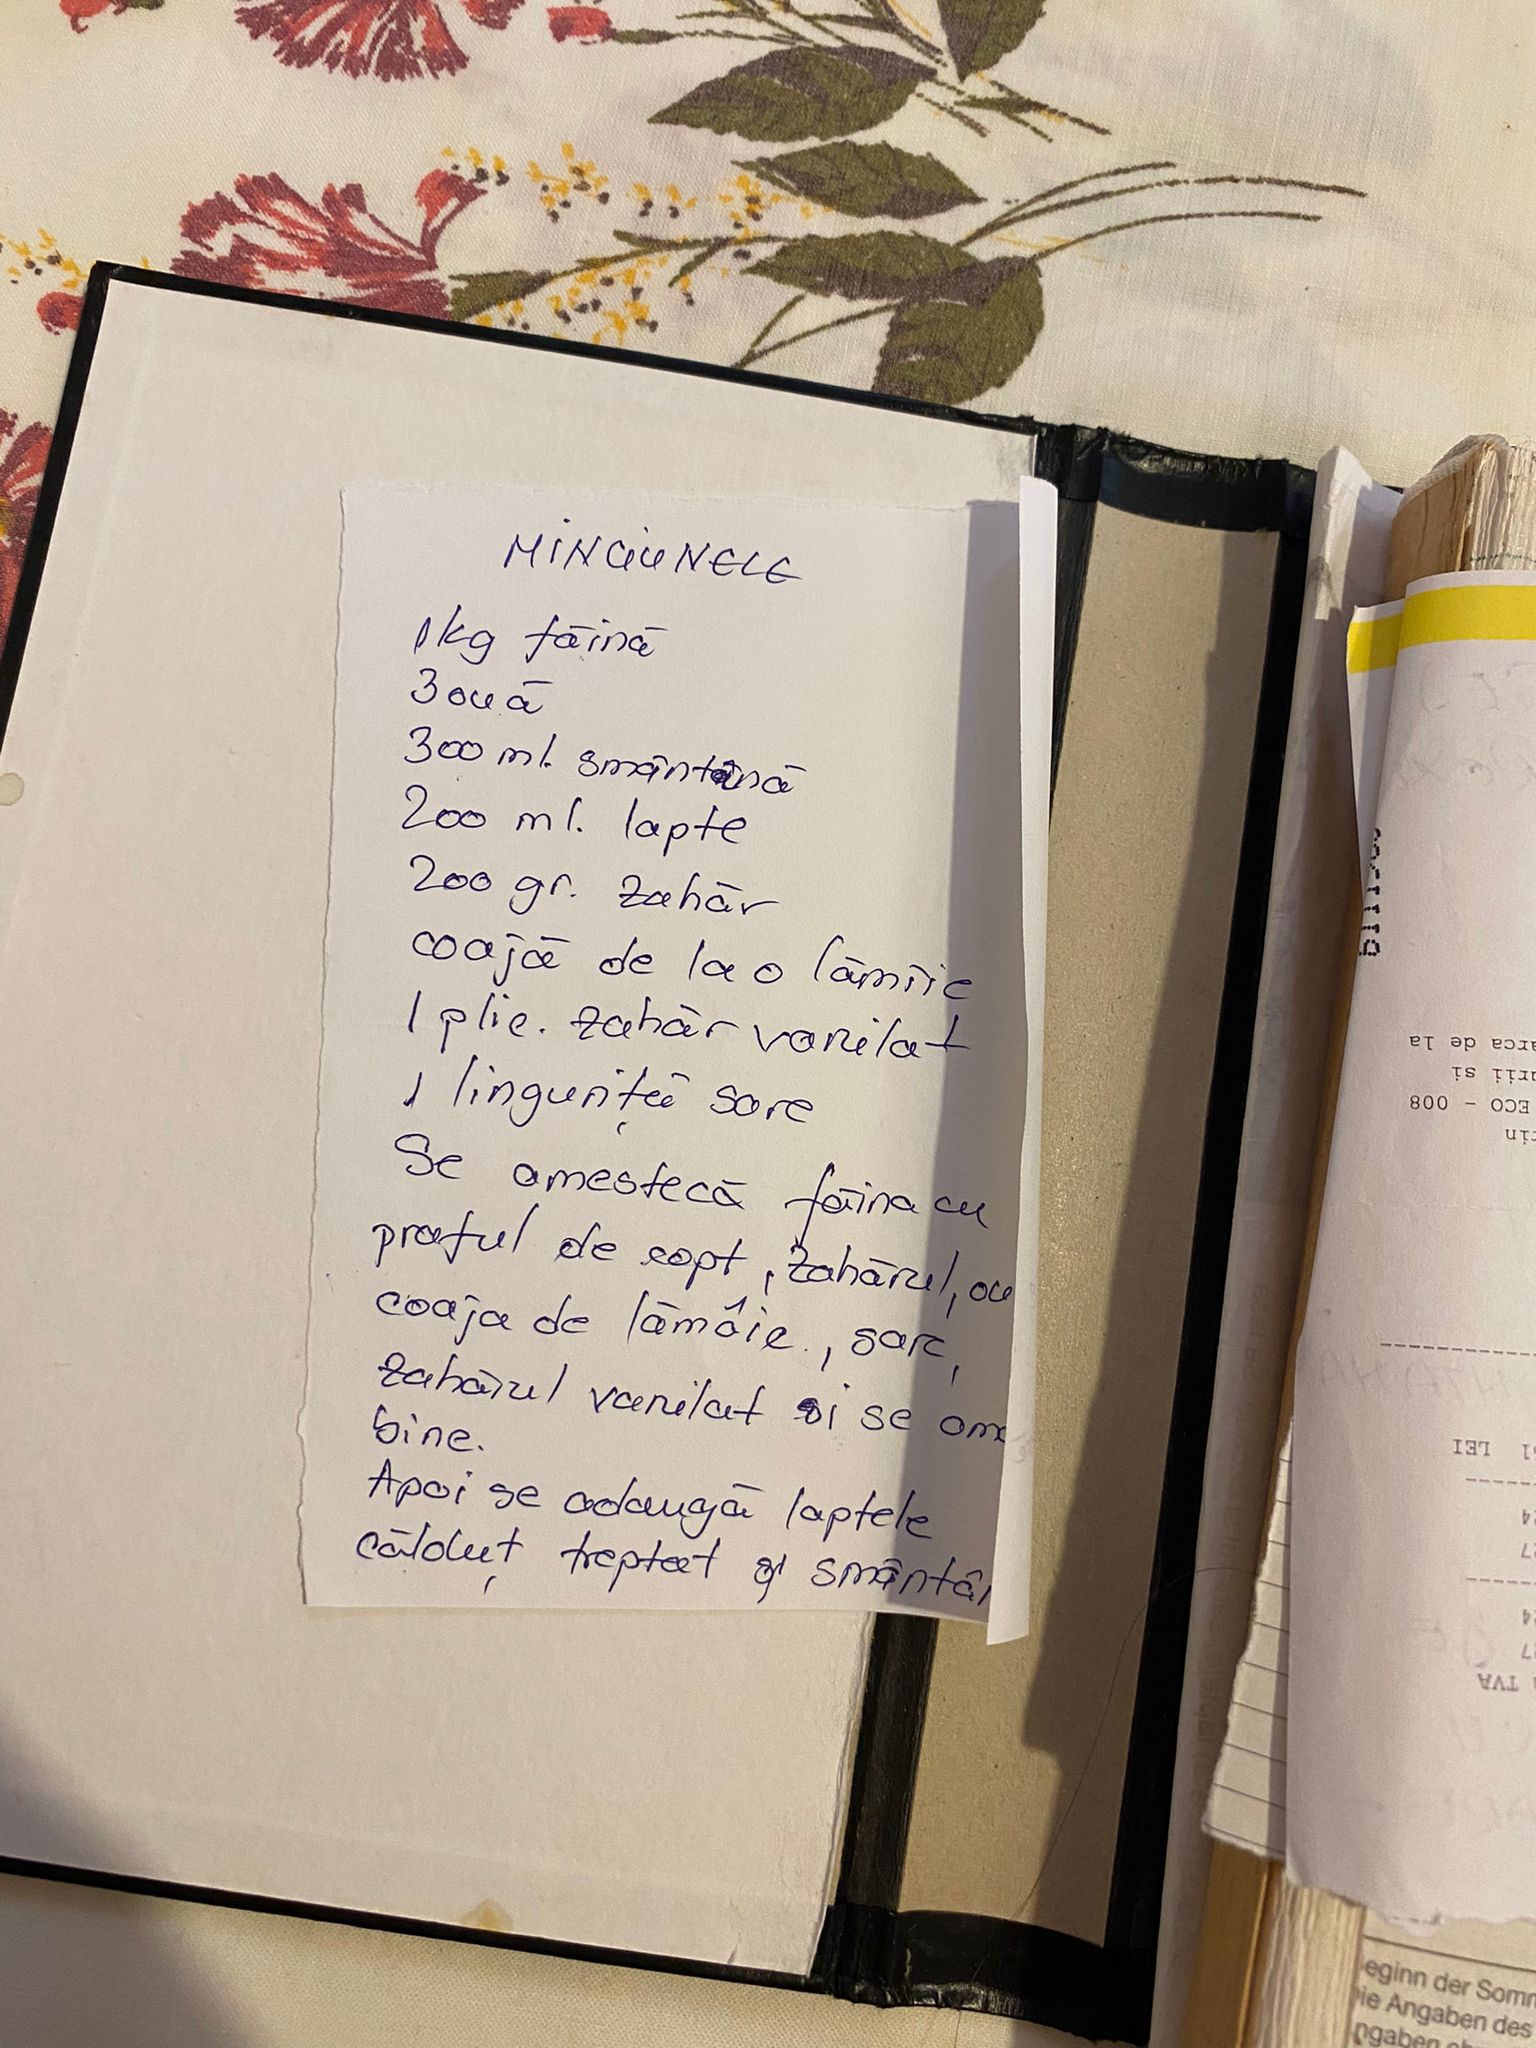 MINCIUNELE
1kg făină
3 ouă
300 ml. smântână
200 ml. lapte
200 gr. zahăr
coajă de la o lămîie
1 plic. zahăr vanilat
1 linguriță sare
Se amestecă făina cu
praful de copt, zahărul, ou
coaja de lămâie, sare,
zahărul vanilat și se ame
bine.
Apoi se adaugă laptele
călduț treptat și smântân
arca de la
urii si
ECO - 008
LEI
24
27
24
27
TVA
Beginn der Somm
Die Angaben des
ngaben